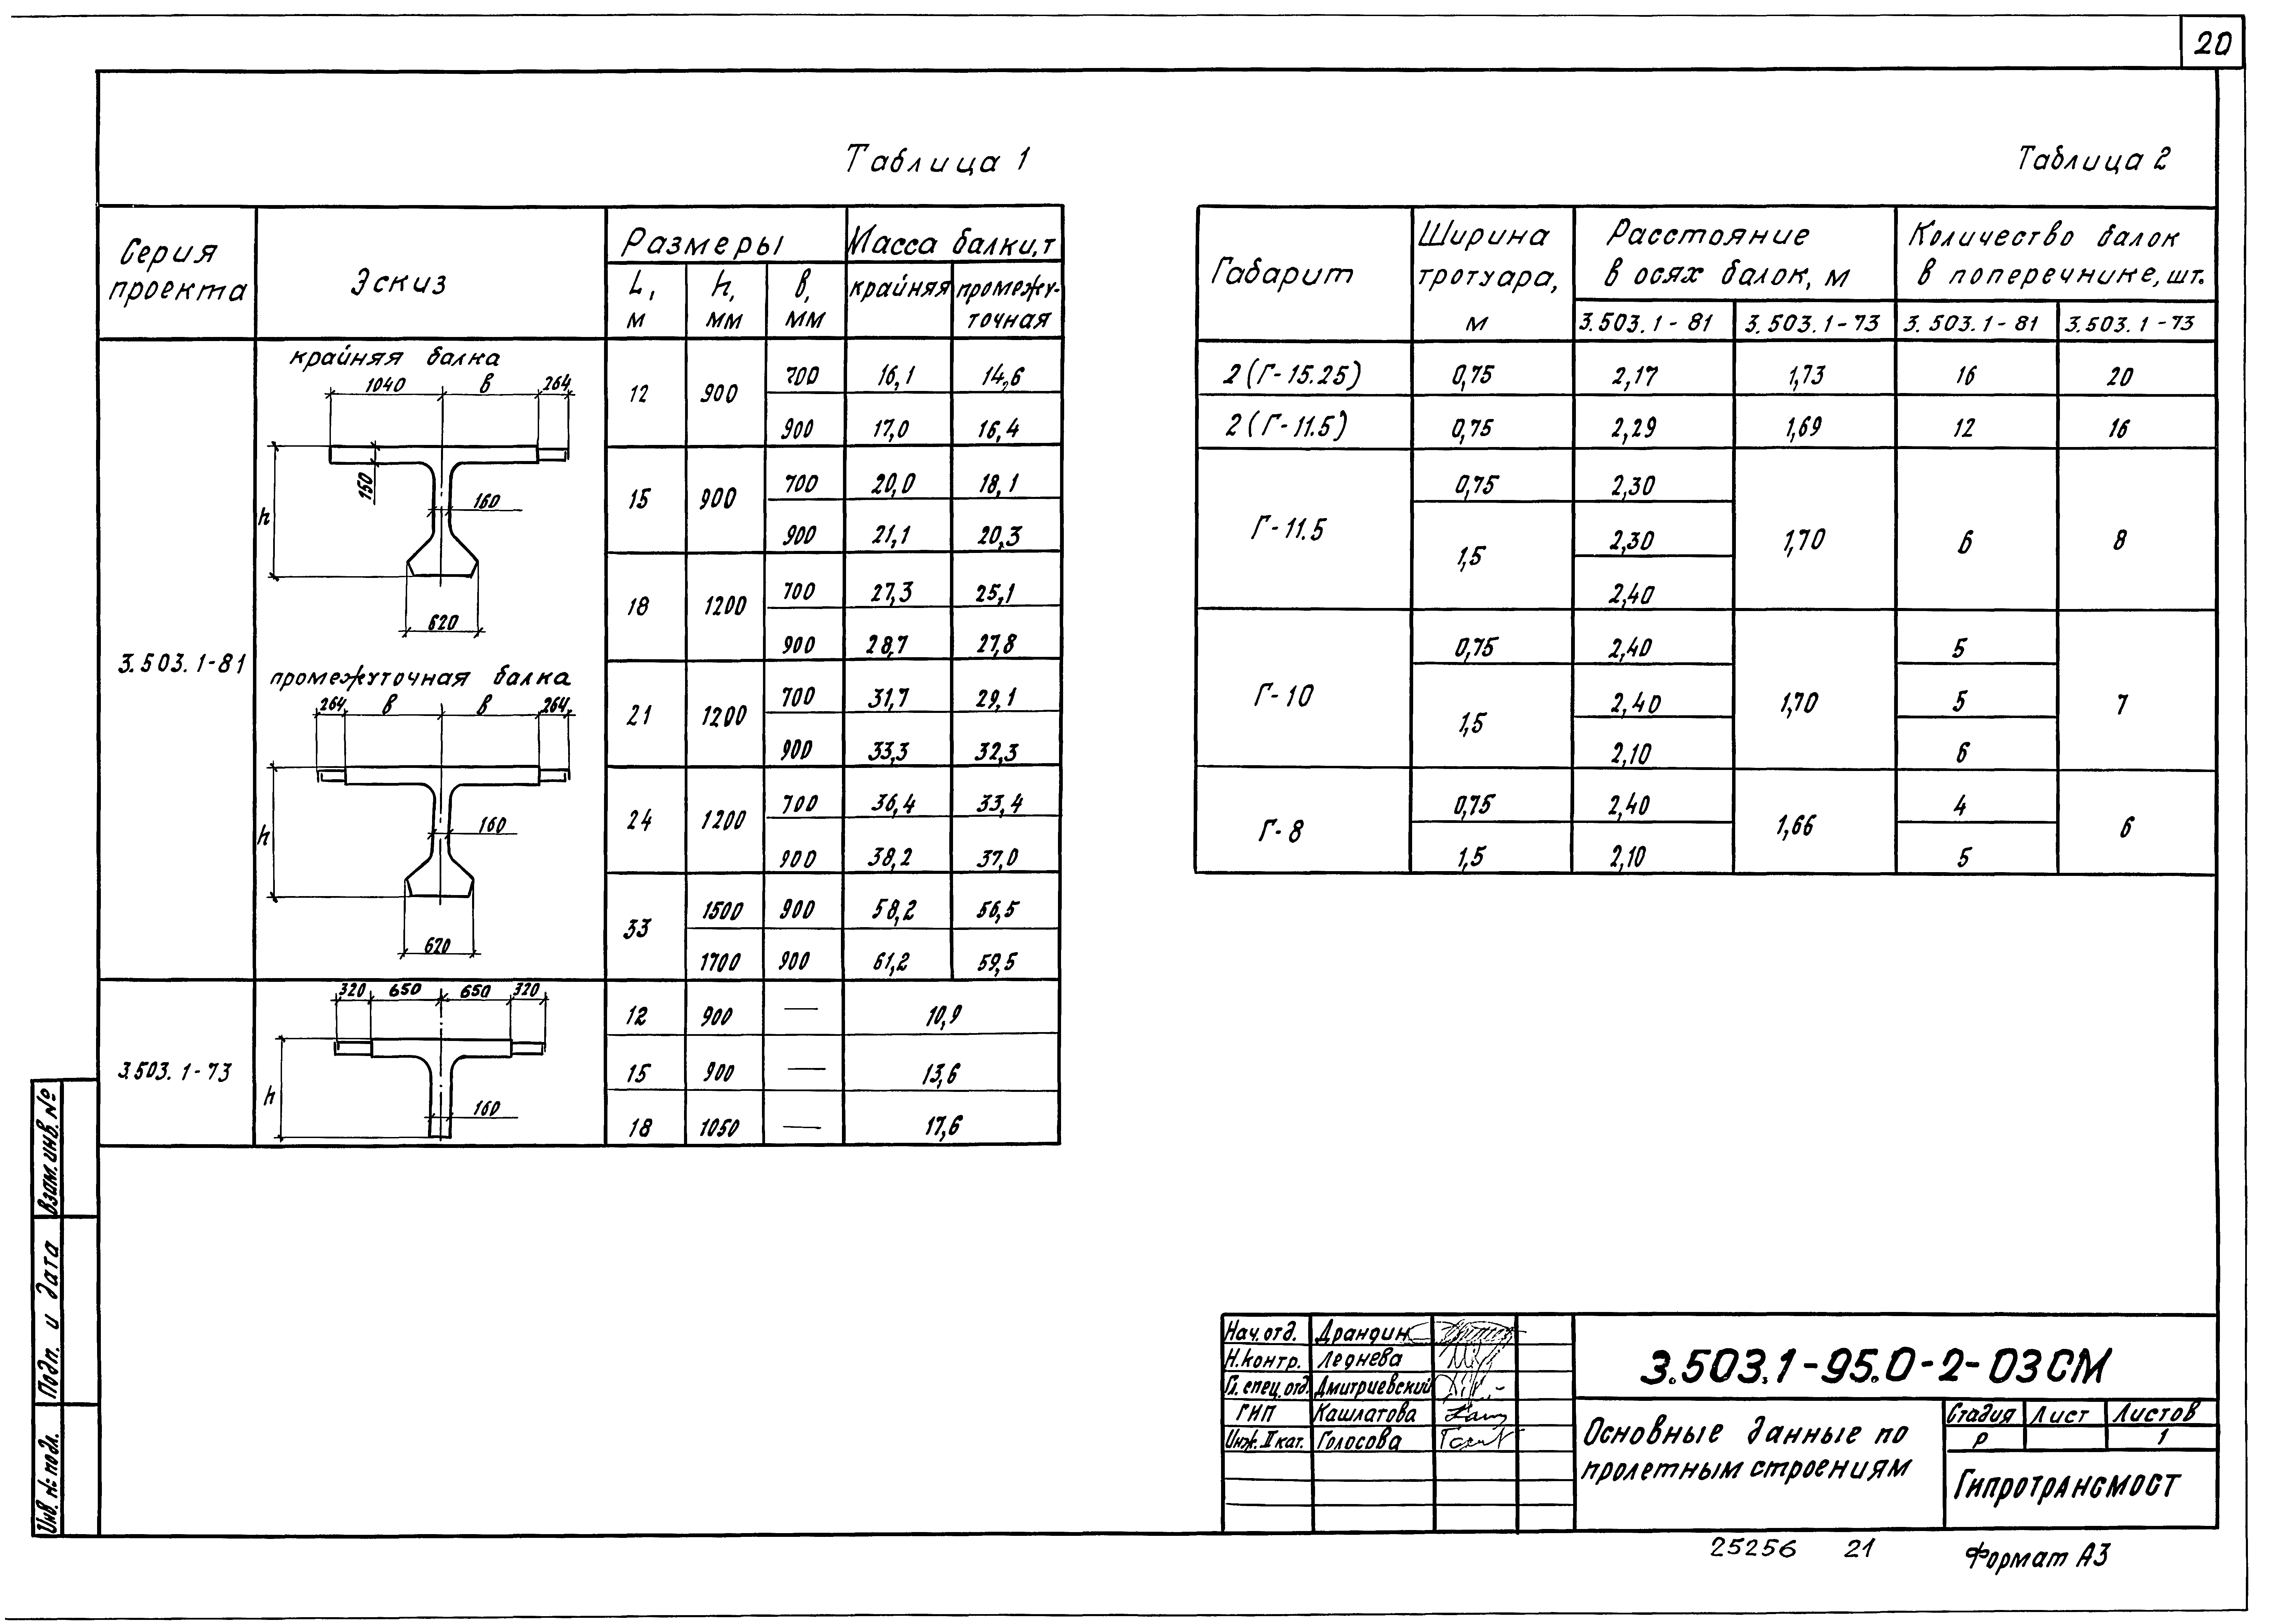 20
Таблица 1
Серия проекта | Эскиз | Размеры | Масса балки, т
L, м | h, мм | в, мм | крайняя | промежу-точная
3.503.1-81
крайняя балка
1040 в 264
150
160
h
620
промежуточная балка
264 в в 264
160
h
620
12 | 900 | 700 | 16,1 | 14,6
900 | 17,0 | 16,4
15 | 900 | 700 | 20,0 | 18,1
900 | 21,1 | 20,3
18 | 1200 | 700 | 27,3 | 25,1
900 | 28,7 | 27,8
21 | 1200 | 700 | 31,7 | 29,1
900 | 33,3 | 32,3
24 | 1200 | 700 | 36,4 | 33,4
900 | 38,2 | 37,0
33 | 1500 | 900 | 58,2 | 56,5
1700 | 900 | 61,2 | 59,5
3.503.1-73
320 650 650 320
h
160
12 | 900 | — | 10,9
15 | 900 | — | 13,6
18 | 1050 | — | 17,6
Таблица 2
Габарит | Ширина тротуара, м | Расстояние в осях балок, м | Количество балок в поперечнике, шт.
3.503.1-81 | 3.503.1-73 | 3.503.1-81 | 3.503.1-73
2(Г-15.25) | 0,75 | 2,17 | 1,73 | 16 | 20
2(Г-11.5) | 0,75 | 2,29 | 1,69 | 12 | 16
Г-11.5 | 0,75 | 2,30 | 1,70 | 6 | 8
1,5 | 2,30
2,40
Г-10 | 0,75 | 2,40 | 1,70 | 5 | 7
1,5 | 2,40 | 5
2,10 | 6
Г-8 | 0,75 | 2,40 | 1,66 | 4 | 6
1,5 | 2,10 | 5
Взам. инв. №
Подп. и дата
Инв. № подл.
Нач. отд. Драндин
Н. контр. Леднева
Гл. спец. отд. Дмитриевский
ГИП Кашлатова
Инж. II кат. Голосова
3.503.1-95.0-2-03СМ
Основные данные по
пролетным строениям
Стадия | Лист | Листов
Р | | 1
Гипротрансмост
25256 21
Формат А3